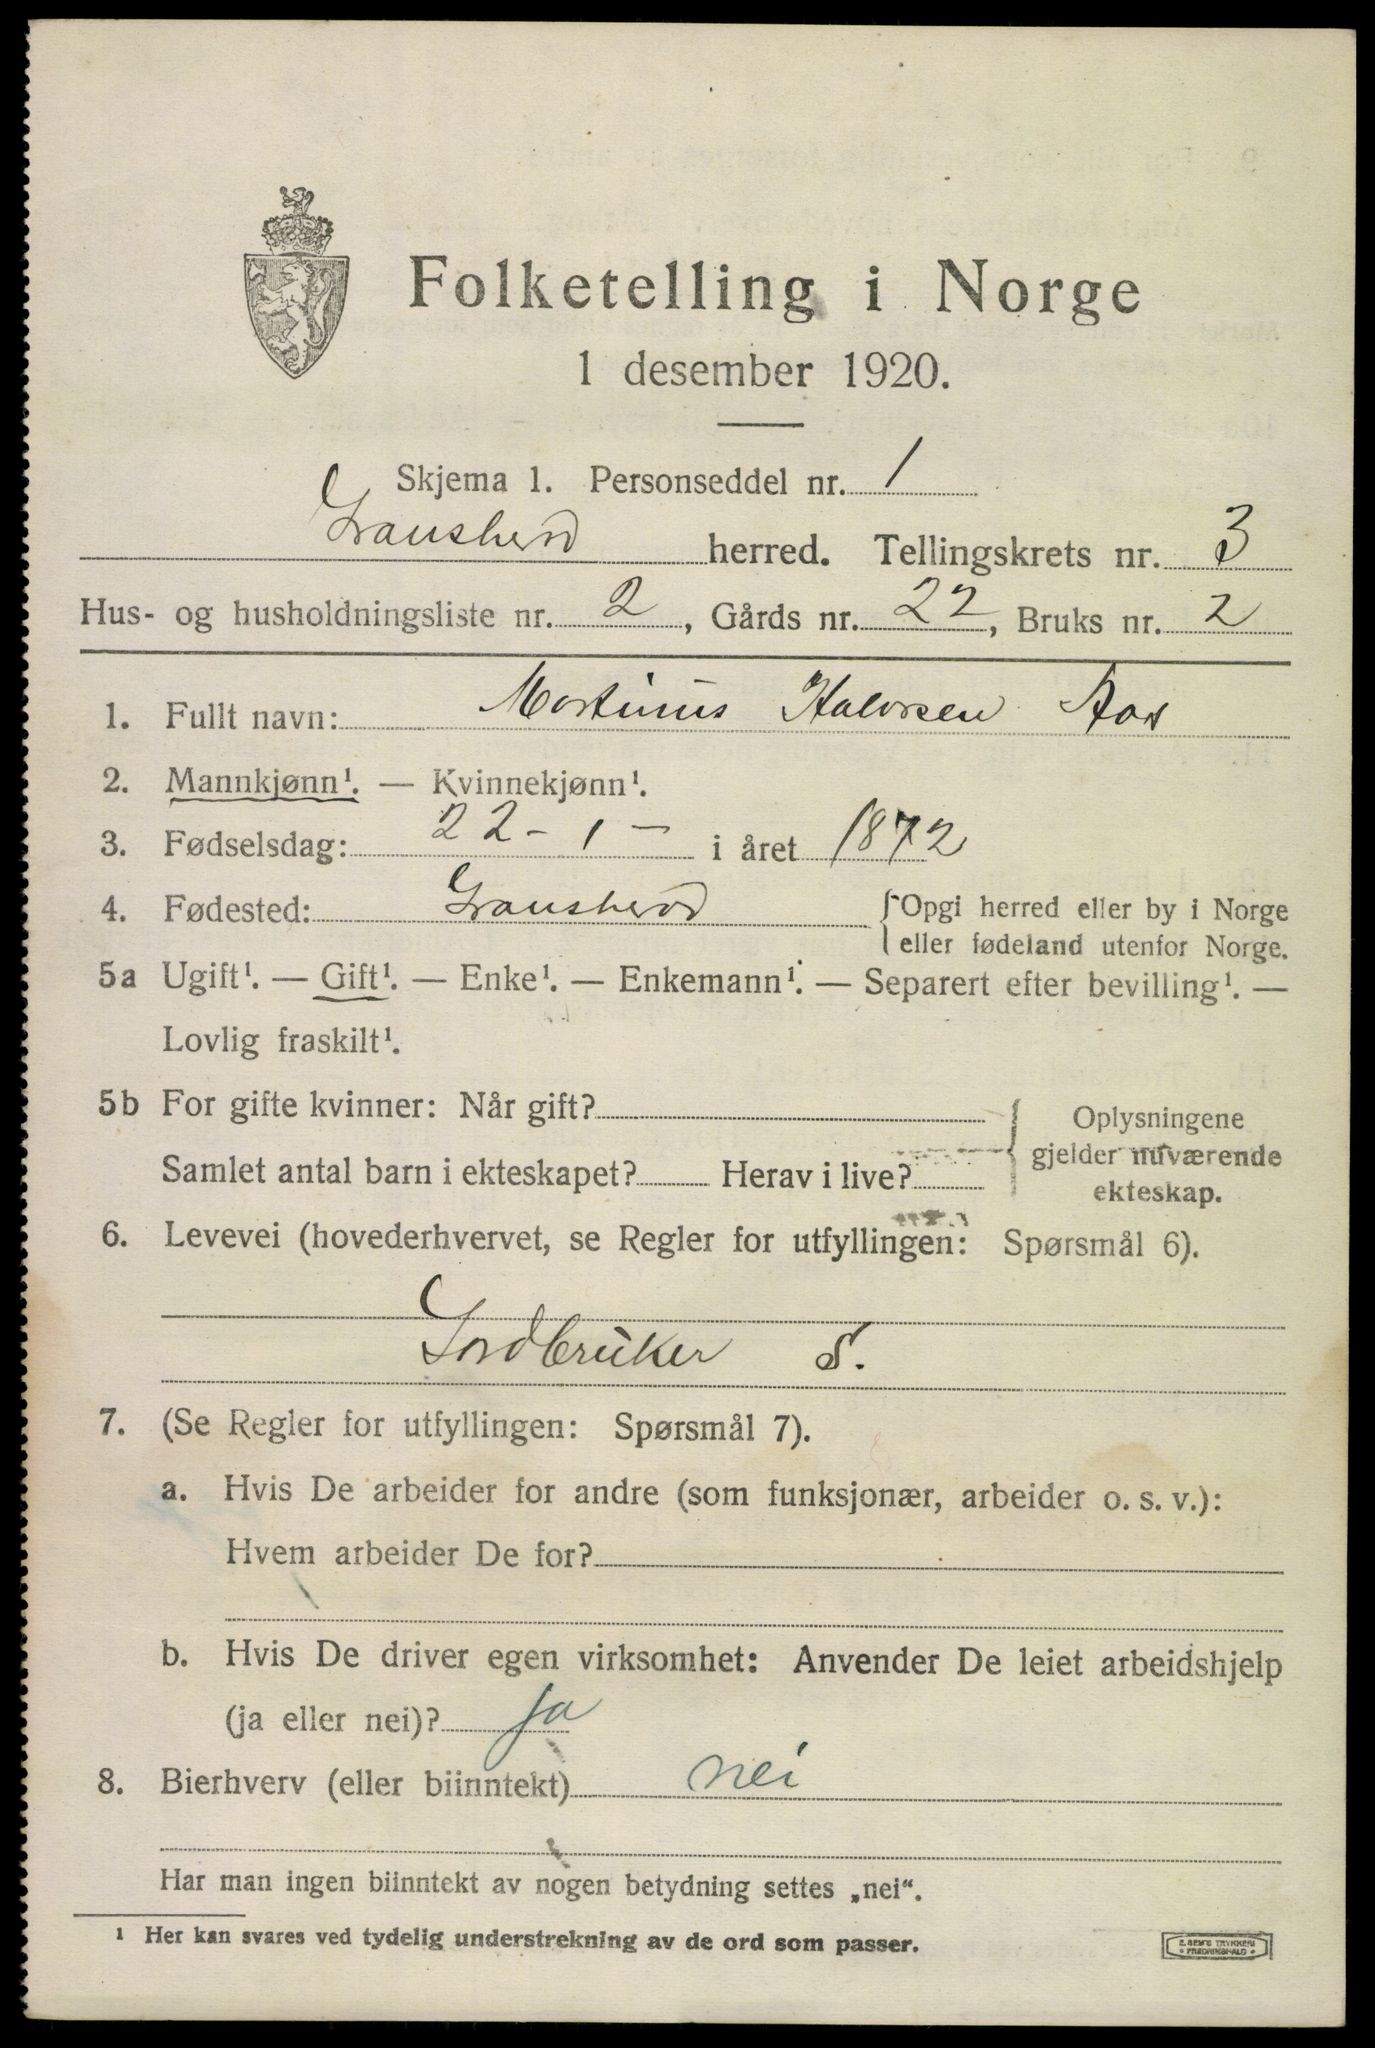 Folketelling i Norge
1 desember 1920.
Skjema 1. Personseddel nr. 1
Gransherd herred. Tellingskrets nr. 3
Hus- og husholdningsliste nr. 2, Gårds nr. 22, Bruks nr. 2
1. Fullt navn: Martinius Halvorsen Aas
2. Mannkjønn¹. — Kvinnekjønn¹.
3. Fødselsdag: 22 - 1 - i året 1872
4. Fødested: Gransherd {Opgi herred eller by i Norge
eller fødeland utenfor Norge.
5a Ugift¹. — Gift¹. — Enke¹. — Enkemann¹. — Separert efter bevilling¹. —
Lovlig fraskilt¹.
5b For gifte kvinner: Når gift?
Samlet antal barn i ekteskapet? Herav i live?
Oplysningene
gjelder nuværende
ekteskap.
6. Levevei (hovederhvervet, se Regler for utfyllingen: Spørsmål 6).
Jordbruker S.
7. (Se Regler for utfyllingen: Spørsmål 7).
a. Hvis De arbeider for andre (som funksjonær, arbeider o. s. v.):
Hvem arbeider De for?
b. Hvis De driver egen virksomhet: Anvender De leiet arbeidshjelp
(ja eller nei)? ja
8. Bierhverv (eller biinntekt) nei
Har man ingen biinntekt av nogen betydning settes „nei“.
¹ Her kan svares ved tydelig understrekning av de ord som passer.
E. SEM'S TRYKKERI
FREDRIKSHALD